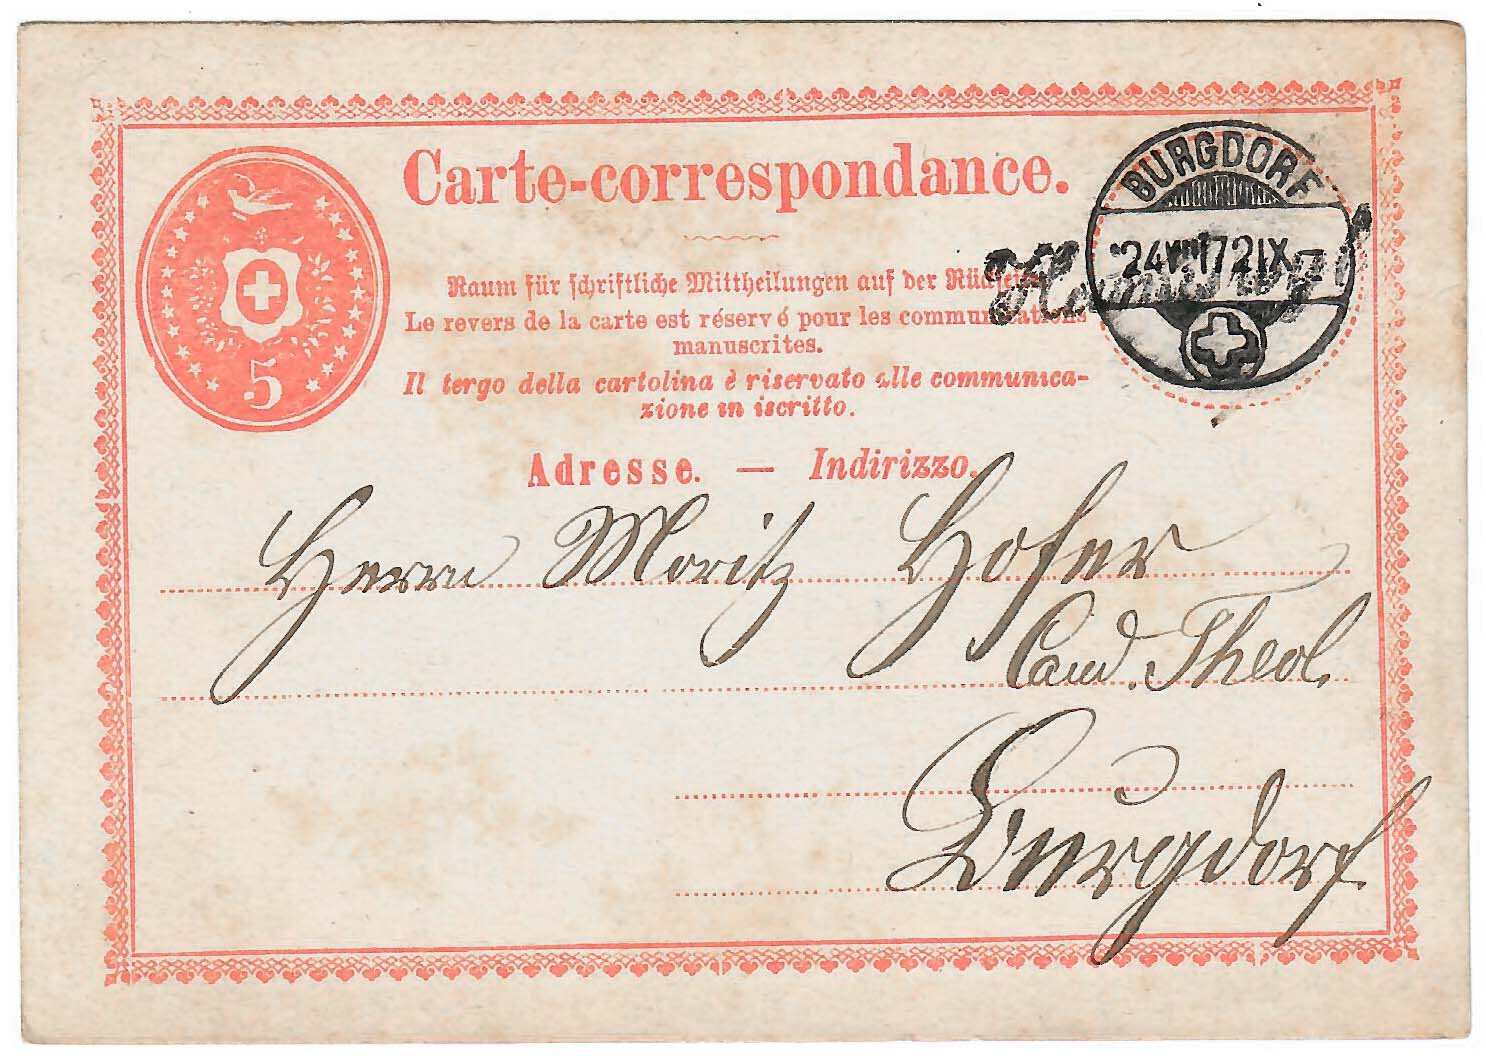 Carte-correspondance.
BURGDORF
24 VII 72 IX
5
Raum für schriftliche Mittheilungen auf der Rückseite.
Le revers de la carte est réservé pour les communications
manuscrites.
Il tergo della cartolina è riservato alle communica-
zione in iscritto.
Adresse. — Indirizzo.
Herrn Moritz Hofer
Cand. Theol.
Burgdorf